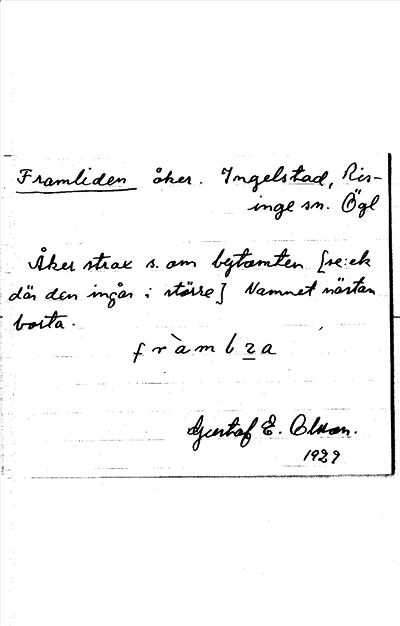 Framliden åker. Ingelstad, Ris-
inge sn. Ögl
Åker strax s. om bytomten [se: ek
där den ingår i större] Namnet nästan
borta.
Gustaf E. Olson.
1929